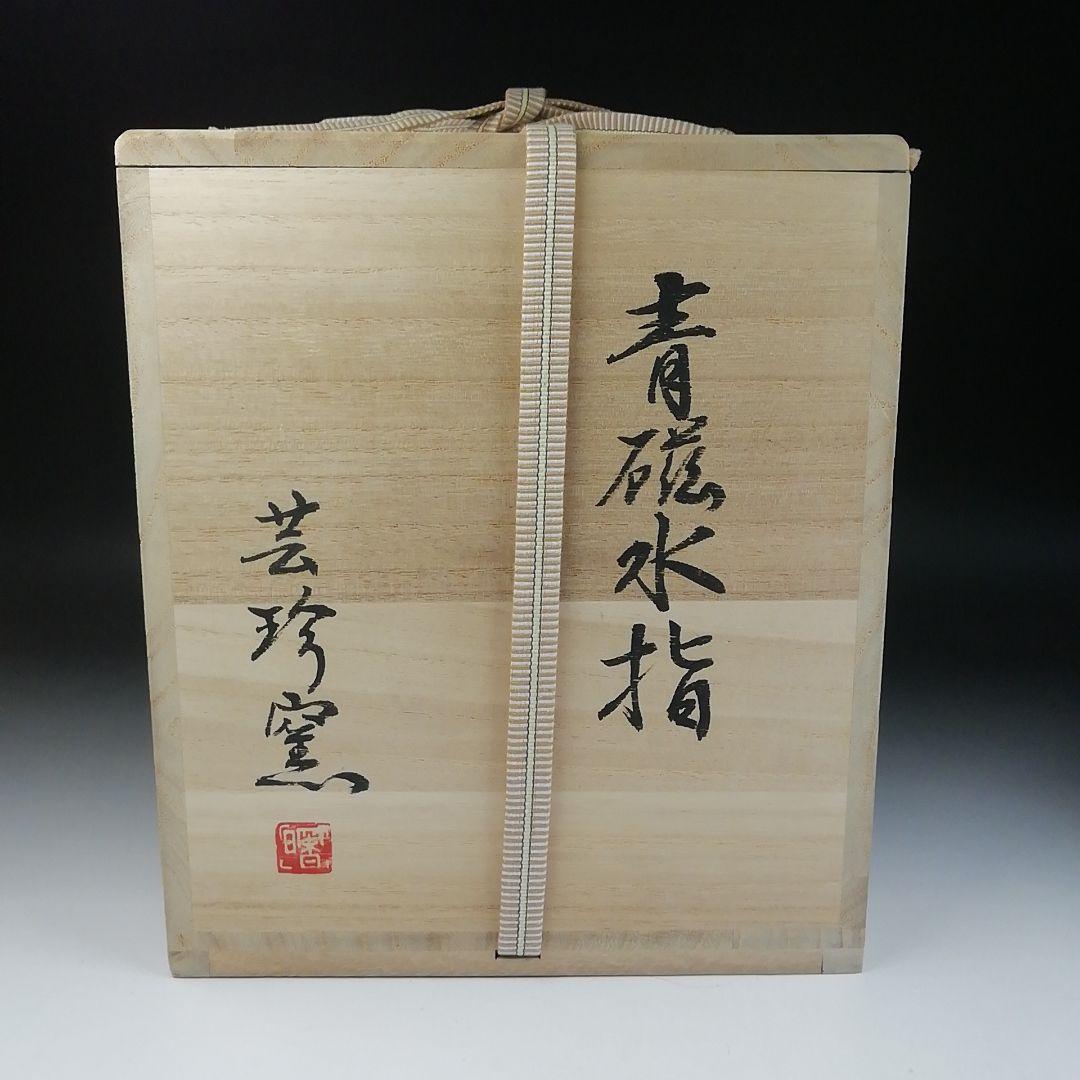 青磁水指
芸珍窯